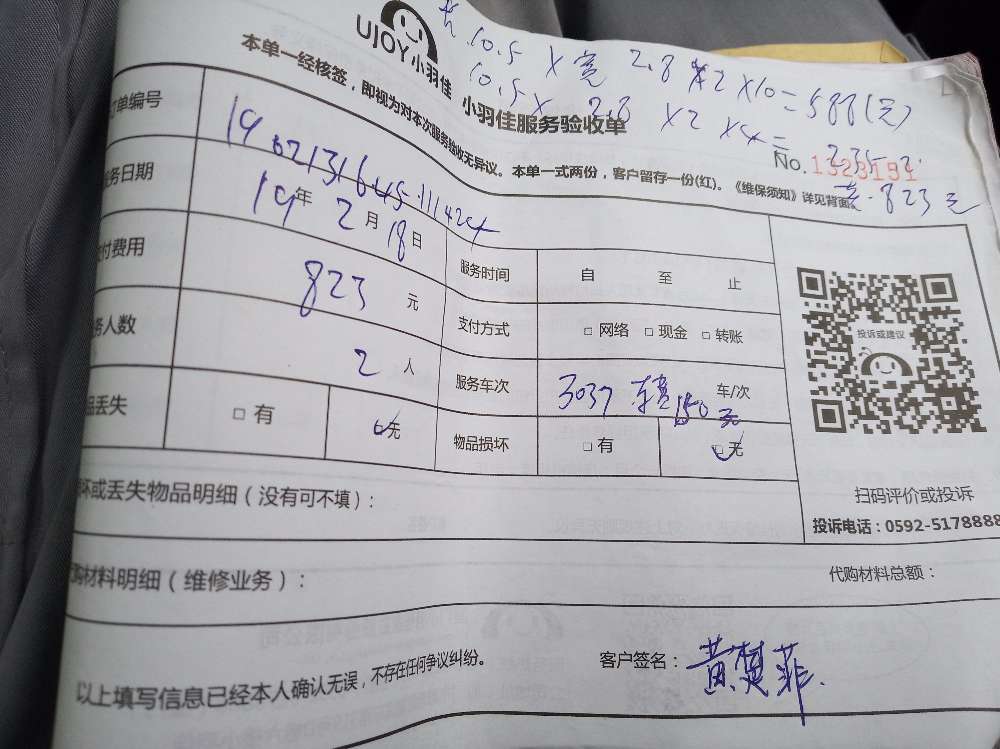 UJOY小羽佳
长10.5 X 宽 2.8 X2 X10=588(元)
10.5X 2.8 X2 X4= 235.2
小羽佳服务验收单
No.1323191
共.823元
本单一经核签，即视为对本次服务验收无异议。本单一式两份，客户留存一份(红)。《维保须知》详见背面。
订单编号 1902131645111424
服务日期 19年2月18日 服务时间 自 至 止
支付费用 823元 支付方式 □ 网络 □ 现金 □ 转账
服务人数 2人 服务车次 3037 车费150元 车/次
品丢失 □ 有 □无 物品损坏 □ 有 □ 无
投诉或建议
扫码评价或投诉
投诉电话：0592-5178888
损坏或丢失物品明细（没有可不填）：
代购材料明细（维修业务）： 代购材料总额：
以上填写信息已经本人确认无误，不存在任何争议纠纷。
客户签名：黄楚菲.